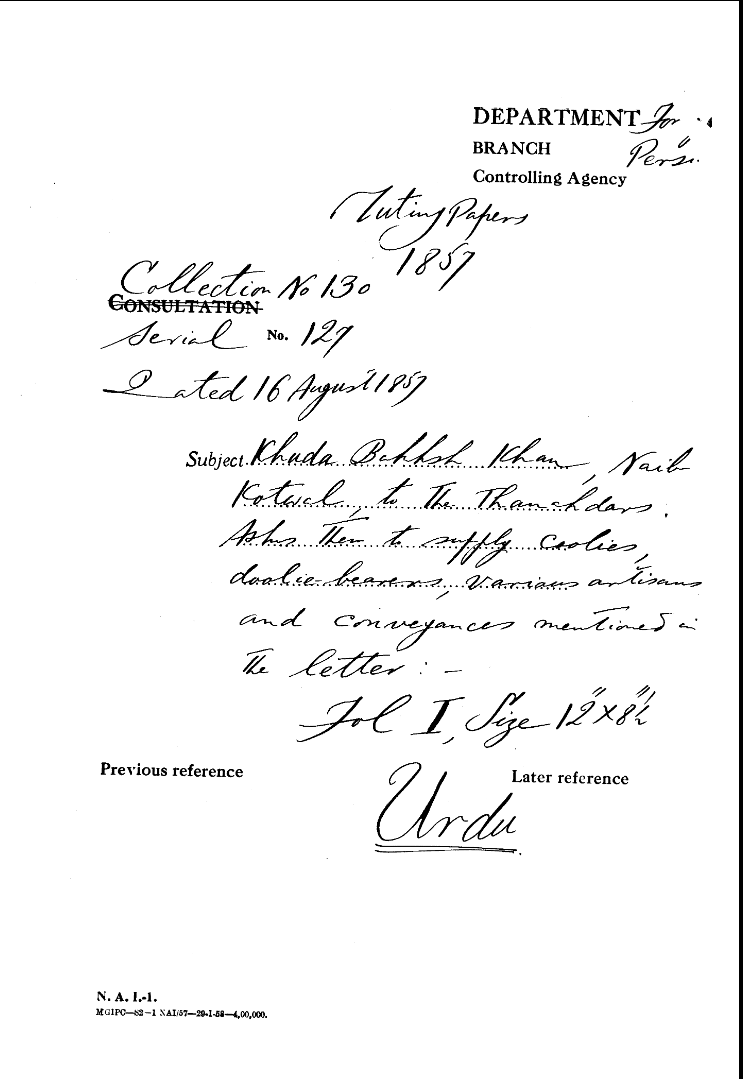 DEPARTMENT For
BRANCH Pers.
Controlling Agency
Mutiny Papers
1857
Collection No 130
CONSULTATION
Serial No. 127
Dated 16 August 1857
Subject Khuda Bakhsh Khan, Naib
Kotwal, to the Thanehdars.
Asks them to supply coolies,
doolie-bearers, various artisans
and conveyances mentioned in
the letter :-
Fol I, Size 12"X8½"
Previous reference
Later reference
Urdu
N. A. I.-1.
MGIPC—S2—1 NAI/57—29-1-58—4,00,000.